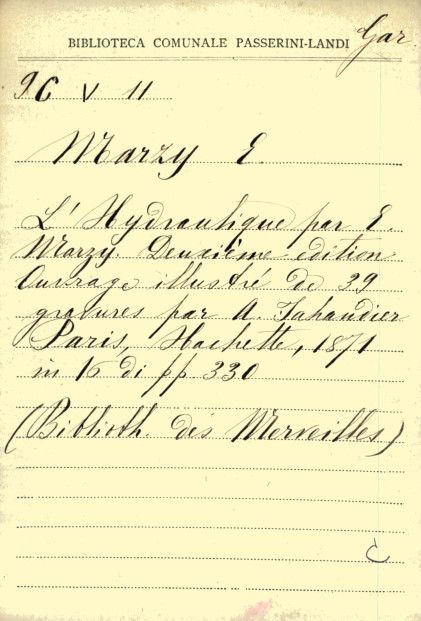 BIBLIOTECA COMUNALE PASSERINI-LANDI Gar.
9C V 11
Marzy E.
L'Hydraulique par E.
Marzy. Deuxième édition
Ouvrage illustré de 39
gravures par A. Jahandier
Paris, Hachette, 1871
in 16 di pp 330
(Biblioth. des Merveilles)
C